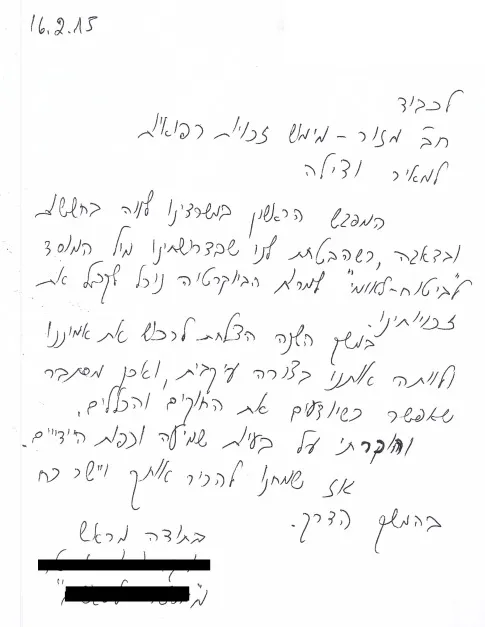 16.2.15
לכבוד
חב' מזור - מימוש זכויות רפואיות
למאיר ודילה
המפגש הראשון במשרדינו לווה בחששות
ובדאגה, כשהבטחת לנו שבדרישתינו מול המוסד
לביטוח-לאומי" למרות הביוקרטיה נוכל לקבל את
זכויותינו.
במשך השנה הצלחת לרכוש את אמוננו
ולוותה אותנו בצורה עיקבית, ואכן מסתבר
שאפשר כשיודעים את החוקים והכללים.
על בעיות שמיעה וכפות הידיים.
אז שמחנו להכיר אותך ויישר כח
בהמשך הדרך.
בתודה מראש